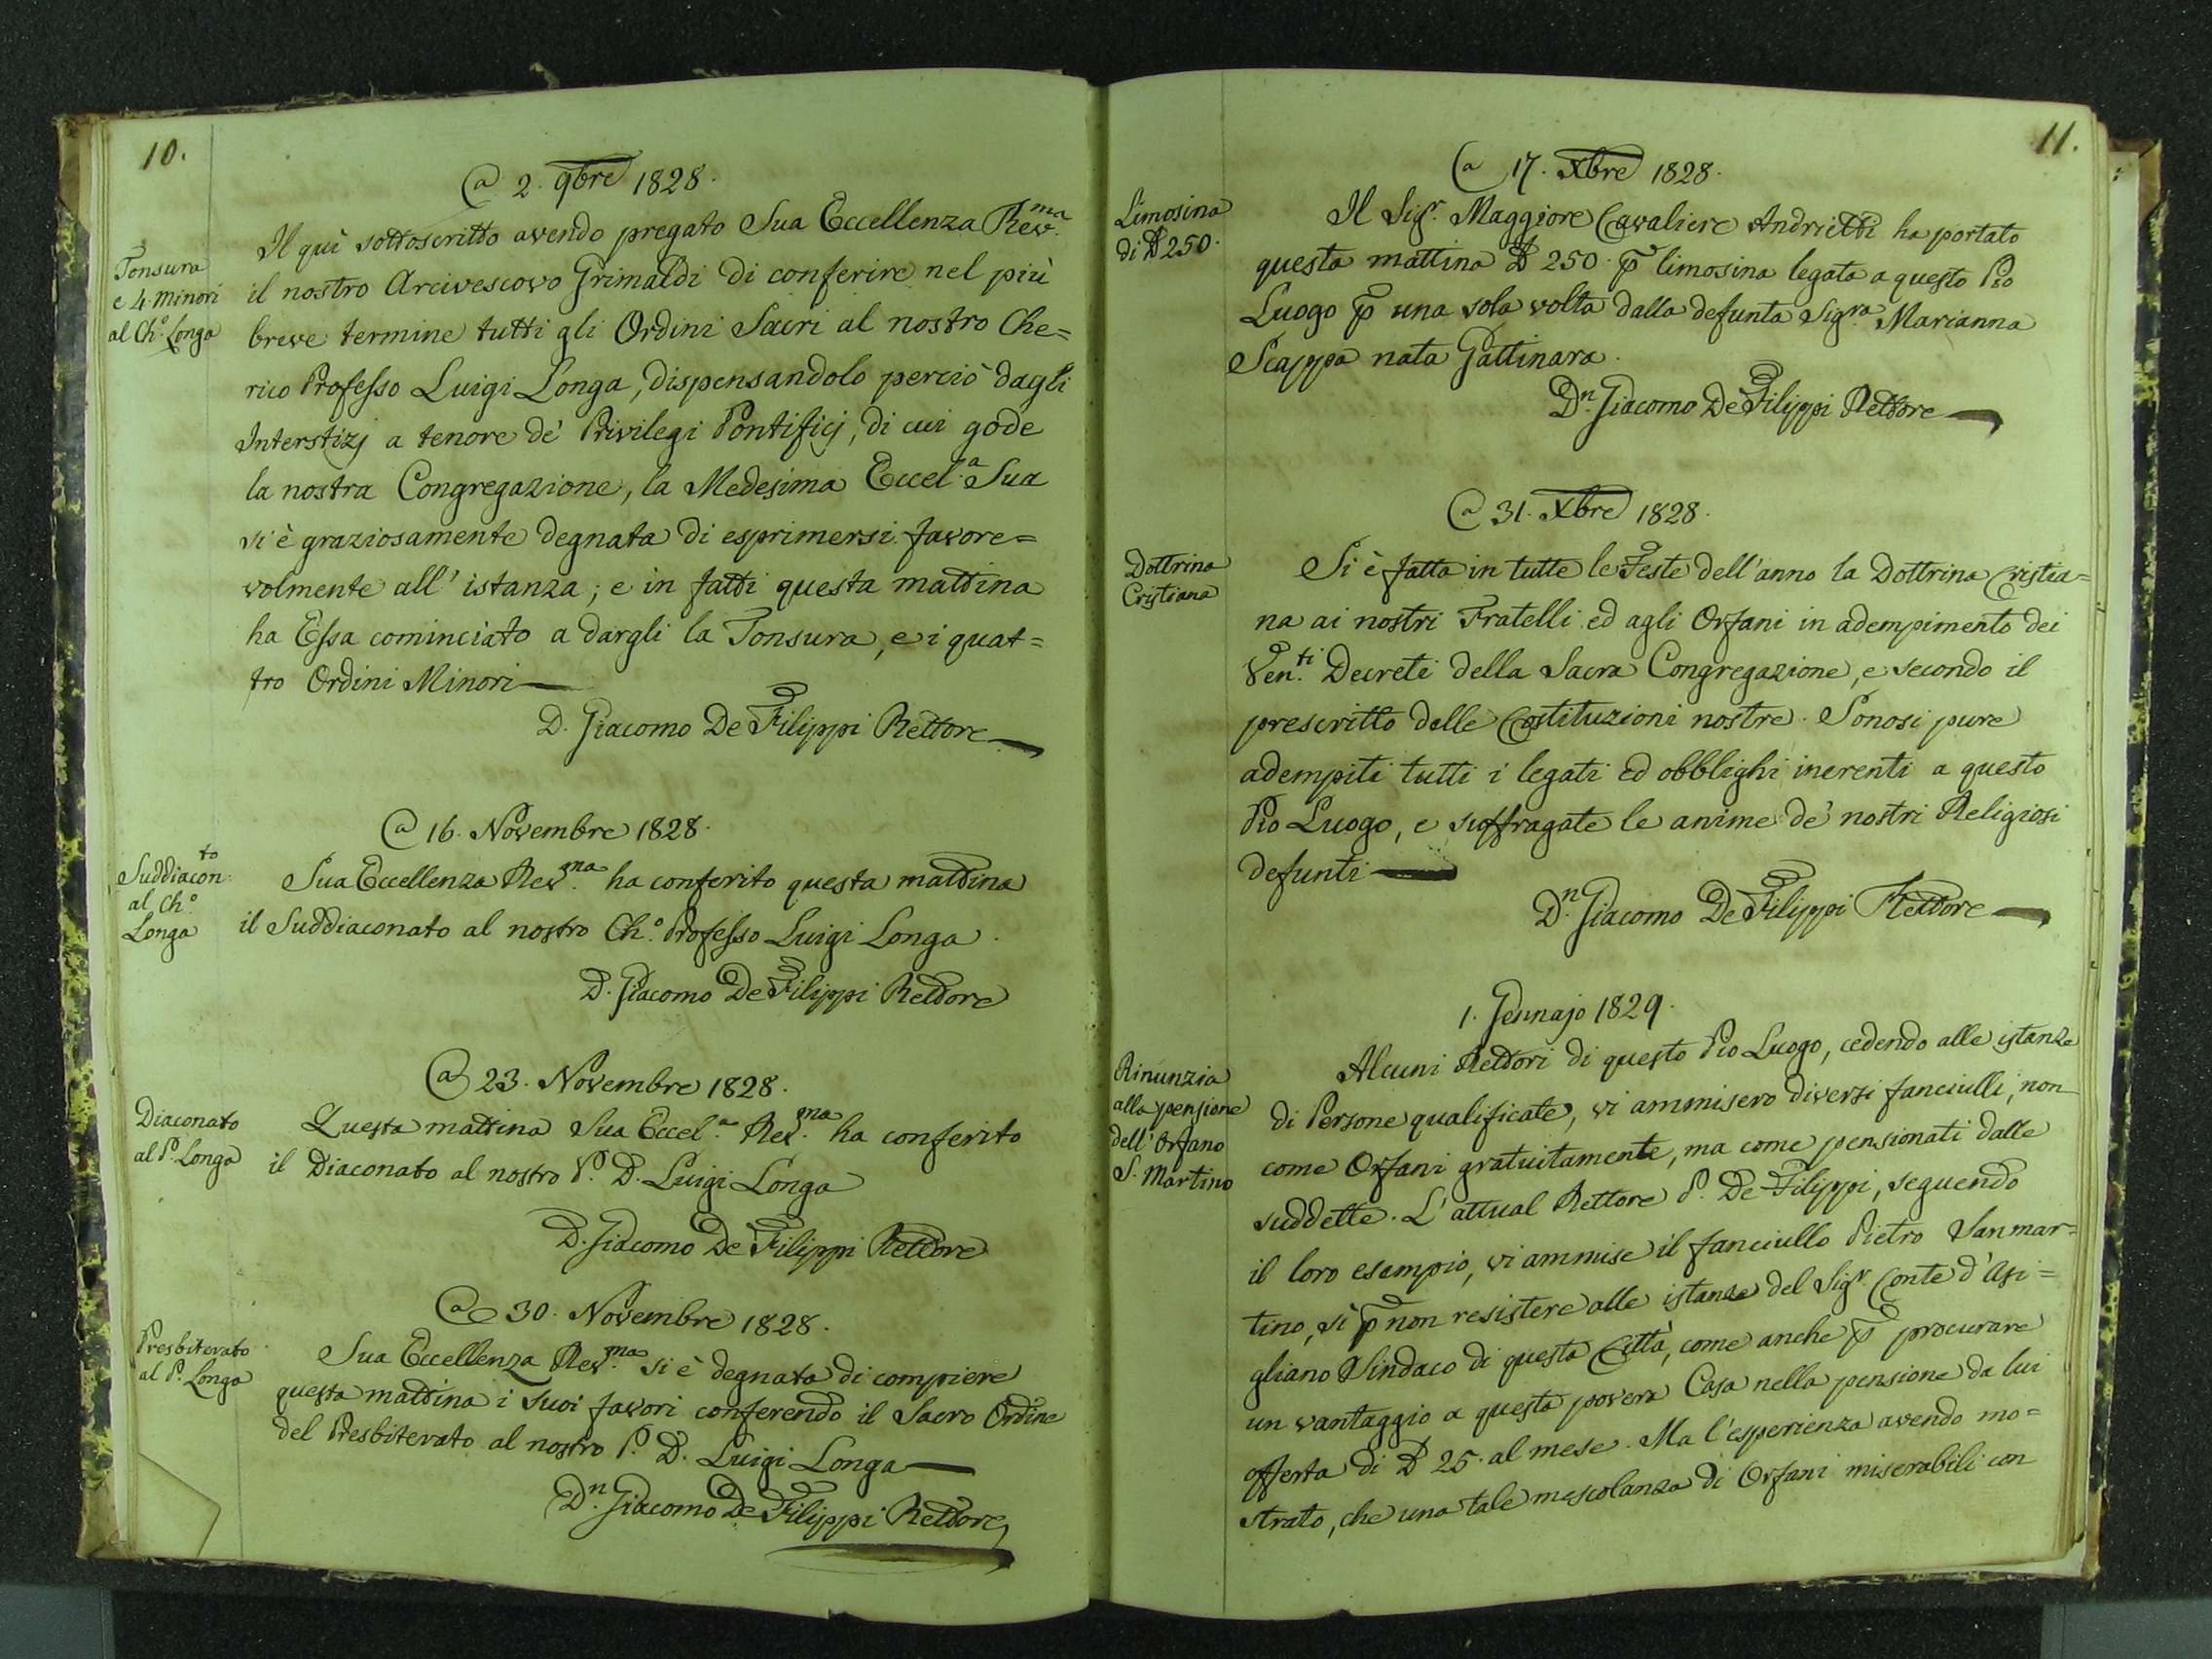 10.
a 2. 9bre 1828.
Tonsura
e 4. minori
al Ch.o Longa
Il quì sottoscritto avendo pregato Sua Eccellenza Rev.ma
il nostro Arcivescovo Grimaldi di conferire nel più
breve termine tutti gli Ordini Sacri al nostro Che=
rico Professo Luigi Longa, dispensandolo perciò dagli
Interstizj a tenore de' Privilegi Pontificj, di cui gode
la nostra Congregazione, la Medesima Eccel.a Sua
si è graziosamente degnata di esprimersi favore=
volmente all' istanza; e in fatti questa mattina
ha Essa cominciato a dargli la Tonsura, e i quat=
tro Ordini Minori
D. Giacomo De Filippi Rettore
a 16. Novembre 1828.
Suddiacon.to
al Ch.o
Longa
Sua Eccellenza Rev.ma ha conferito questa mattina
il Suddiaconato al nostro Ch.o Professo Luigi Longa.
D. Giacomo De Filippi Rettore
a 23. Novembre 1828.
Diaconato
al P. Longa
Questa mattina Sua Eccel.a Rev.ma ha conferito
il Diaconato al nostro P. D. Luigi Longa
D. Giacomo De Filippi Rettore
a 30. Novembre 1828.
Presbiterato
al P. Longa
Sua Eccellenza Rev.ma si è degnata di compiere
questa mattina i suoi favori conferendo il Sacro Ordine
del Presbiterato al nostro P. D. Luigi Longa
D.n Giacomo De Filippi Rettore
11.
a 17. Xbre 1828.
Limosina
di 250.
Il Sig.r Maggiore Cavaliere Andrietti ha portato
questa mattina 250. p limosina legata a questo Pio
Luogo p una sola volta dalla defunta Sig.ra Marianna
Scappa nata Gattinara.
D.n Giacomo De Filippi Rettore
a 31. Xbre 1828.
Dottrina
Cristiana
Si è fatta in tutte le Feste dell'anno la Dottrina Cristia=
na ai nostri Fratelli ed agli Orfani in adempimento dei
Ven.ti Decreti della Sacra Congregazione, e secondo il
prescritto delle Costituzioni nostre. Sonosi pure
adempiti tutti i legati ed obblighi inerenti a questo
Pio Luogo, e suffragate le anime de' nostri Religiosi
defunti
D.n Giacomo De Filippi Rettore
1. Gennajo 1829.
Rinunzia
alla pensione
dell' Orfano
S. Martino
Alcuni Rettori di questo Pio Luogo, cedendo alle istanze
di Persone qualificate, vi ammisero diversi fanciulli, non
come Orfani gratuitamente, ma come pensionati dalle
suddette. L' attual Rettore P. De Filippi, seguendo
il loro esempio, vi ammise il fanciullo Pietro Sanmar=
tino, sì p non resistere alle istanze del Sig.r Conte d' Asi=
gliano Sindaco di questa Città, come anche p procurare
un vantaggio a questa povera Casa nella pensione da lui
offerta di 25. al mese. Ma l'esperienza avendo mo=
strato, che una tale mescolanza di Orfani miserabili con